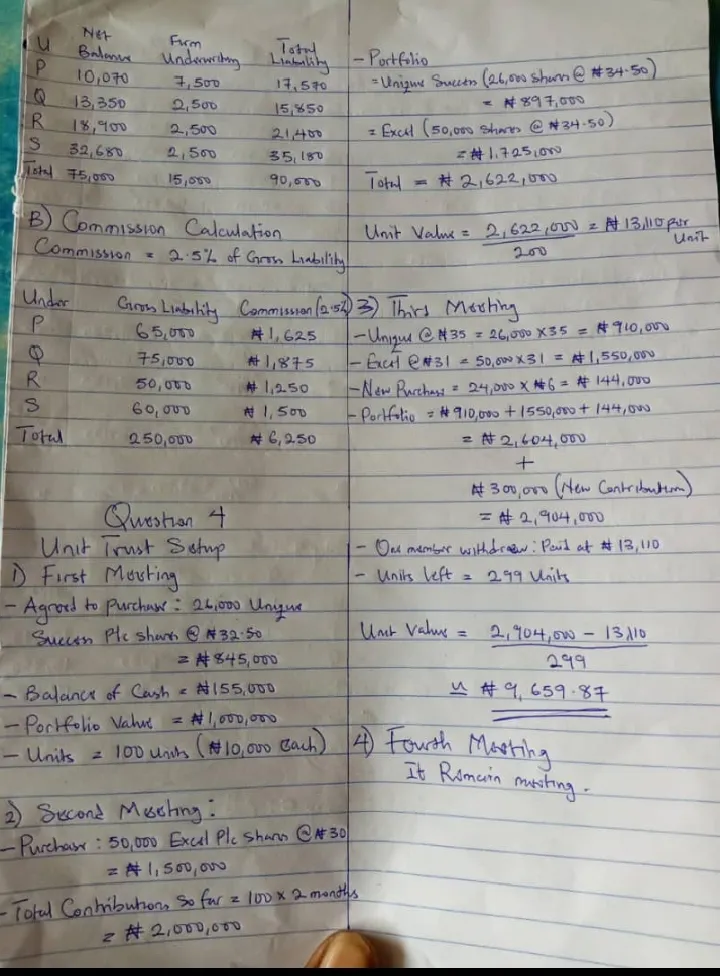 U Net Balance Firm Underwriting Total Liability
P 10,070 7,500 17,570
Q 13,350 2,500 15,850
R 18,900 2,500 21,400
S 32,680 2,500 35,180
Total 75,000 15,000 90,000
B) Commission Calculation
Commission = 2.5% of Gross Liability
Under Gross Liability Commission (2.5%)
P 65,000 ₦1,625
Q 75,000 ₦1,875
R 50,000 ₦1,250
S 60,000 ₦1,500
Total 250,000 ₦6,250
Question 4
Unit Trust Setup
1) First Meeting
- Agreed to Purchase: 26,000 Unique
Success Plc Shares @ ₦32.50
= ₦845,000
- Balance of Cash = ₦155,000
- Portfolio Value = ₦1,000,000
- Units = 100 Units (₦10,000 Each)
2) Second Meeting:
- Purchase: 50,000 Excel Plc Shares @ ₦30
= ₦1,500,000
- Total Contributions So far = 100 x 2 months
= ₦2,000,000
- Portfolio
= Unique Success (26,000 shares @ ₦34.50)
= ₦897,000
= Excel (50,000 Shares @ ₦34.50)
= ₦1,725,000
Total = ₦2,622,000
Unit Value = 2,622,000 = ₦13,110 per Unit
200
3) Third Meeting
- Unique @ ₦35 = 26,000 x 35 = ₦910,000
- Excel @ ₦31 = 50,000 x 31 = ₦1,550,000
- New Purchase = 24,000 x ₦6 = ₦144,000
- Portfolio = ₦910,000 + 1550,000 + 144,000
= ₦2,604,000
+
₦300,000 (New Contribution)
= ₦2,904,000
- One member withdrew: Paid at ₦13,110
- Units left = 299 Units
Unit Value = 2,904,000 - 13,110
299
≃ ₦9,659.87
4) Fourth Meeting
It Remain meeting.